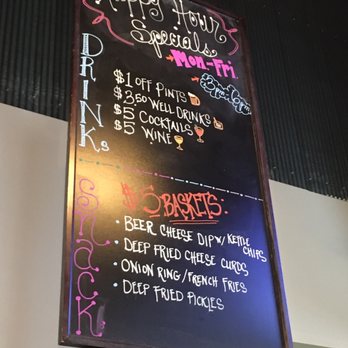 Happy Hour
Specials
Mon-Fri
DRINKs
$1 OFF PINTS
$3.50 WELL DRINKS
$5 COCKTAILS
$5 WINE
SNACKs
$5 BASKETS:
• BEER CHEESE DIP W/ KETTLE
CHIPS
• DEEP FRIED CHEESE CURDS
• ONION RING/FRENCH FRIES
• DEEP FRIED PICKLES